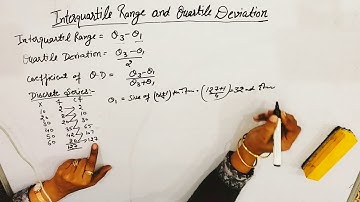 Interquartile Range and Quartile Deviation
Interquartile Range = Q3-Q1
Quartile Deviation = Q3-Q1
2
Coefficient of Q.D = Q3-Q1
Q3+Q1
Discrete Series:-
X f cf
10 2 2
20 8 10
30 20 30
40 35 65
50 42 107
60 20 127
127
Q1 = Size of (N+1) th Item = (127+1) = 32nd Item
4